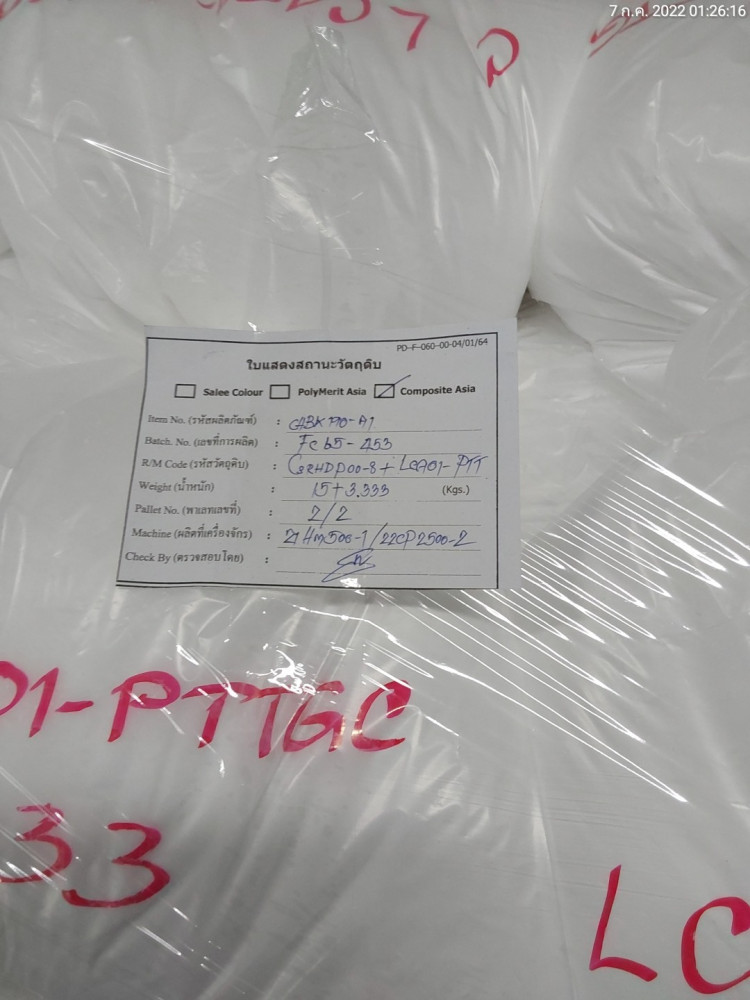 7 ก.ค. 2022 01:26:16
PD-F-060-00-04/01/64
ใบแสดงสถานะวัตถุดิบ
Salee Colour PolyMerit Asia Composite Asia
Item No. (รหัสผลิตภัณฑ์) :
Batch. No. (เลขที่การผลิต) : FC65-453
R/M Code (รหัสวัตถุดิบ) : G2HDP00-8+LCA01-PTT
Weight (น้ำหนัก) : 15+3.333 (Kgs.)
Pallet No. (พาเลทเลขที่) : 2/2
Machine (ผลิตที่เครื่องจักร) : 21HM500-1/22CP2500-2
Check By (ตรวจสอบโดย) :
01-PTTGC
33
LC